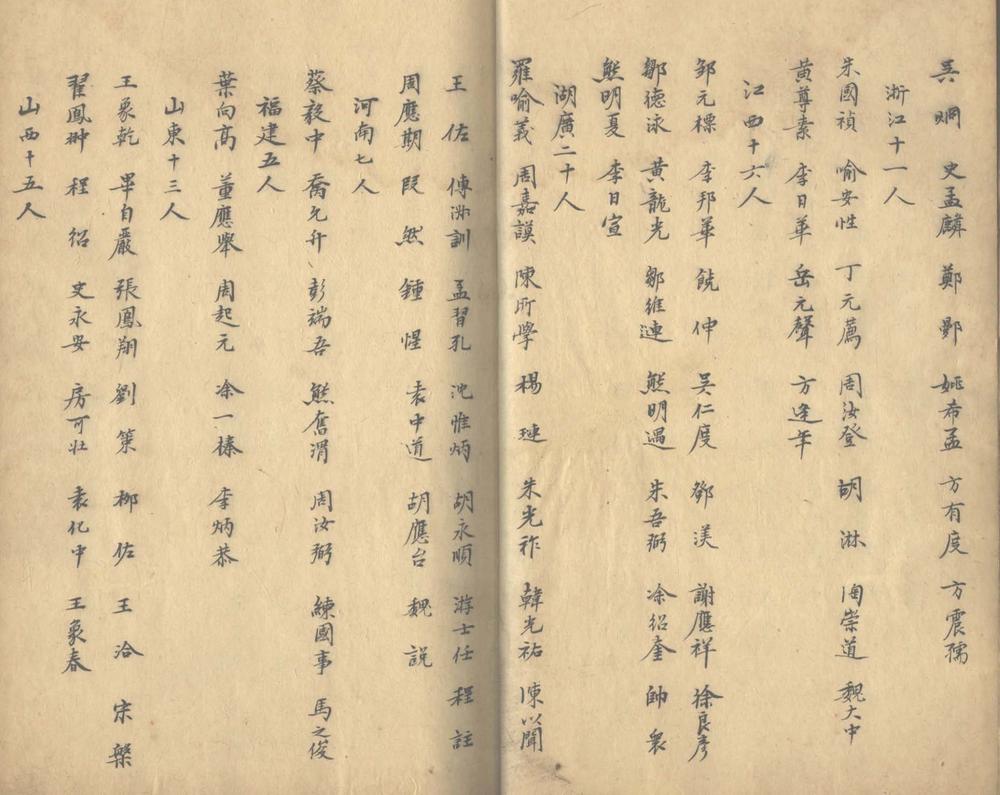 吳炯 史孟麟 鄭鄤 姚希孟 方有度 方震孺
浙江十一人
朱國禎 喻安性 丁元薦 周汝登 胡淋 陶崇道 魏大中
黃尊素 李日華 岳元聲 方逢年
江西十六人
邹元標 李邦華 饒伸 吳仁度 鄧渼 謝應祥 徐良彥
鄒德泳 黃龍光 鄒維璉 熊明遇 朱吾弼 涂紹奎 帥衆
熊明夏 李日宣
湖廣二十人
羅喻義 周嘉謨 陳所學 楊璉 朱光祚 韓光祐 陳以聞
王佐 傅淑訓 孟習孔 沈惟炳 胡永順 游士任 程註
周應期 段然 鍾惺 袁中道 胡應台 魏説
河南七人
蔡毅中 喬允升 彭端吾 熊奮渭 周汝弼 練國事 馬之俊
福建五人
葉向高 董應舉 周起元 涂一榛 李炳恭
山東十三人
王象乾 畢自嚴 張鳳翔 劉策 柳佐 王洽 宋槃
翟鳳翀 程紹 史永安 房可壯 袁化中 王象春
山西十五人